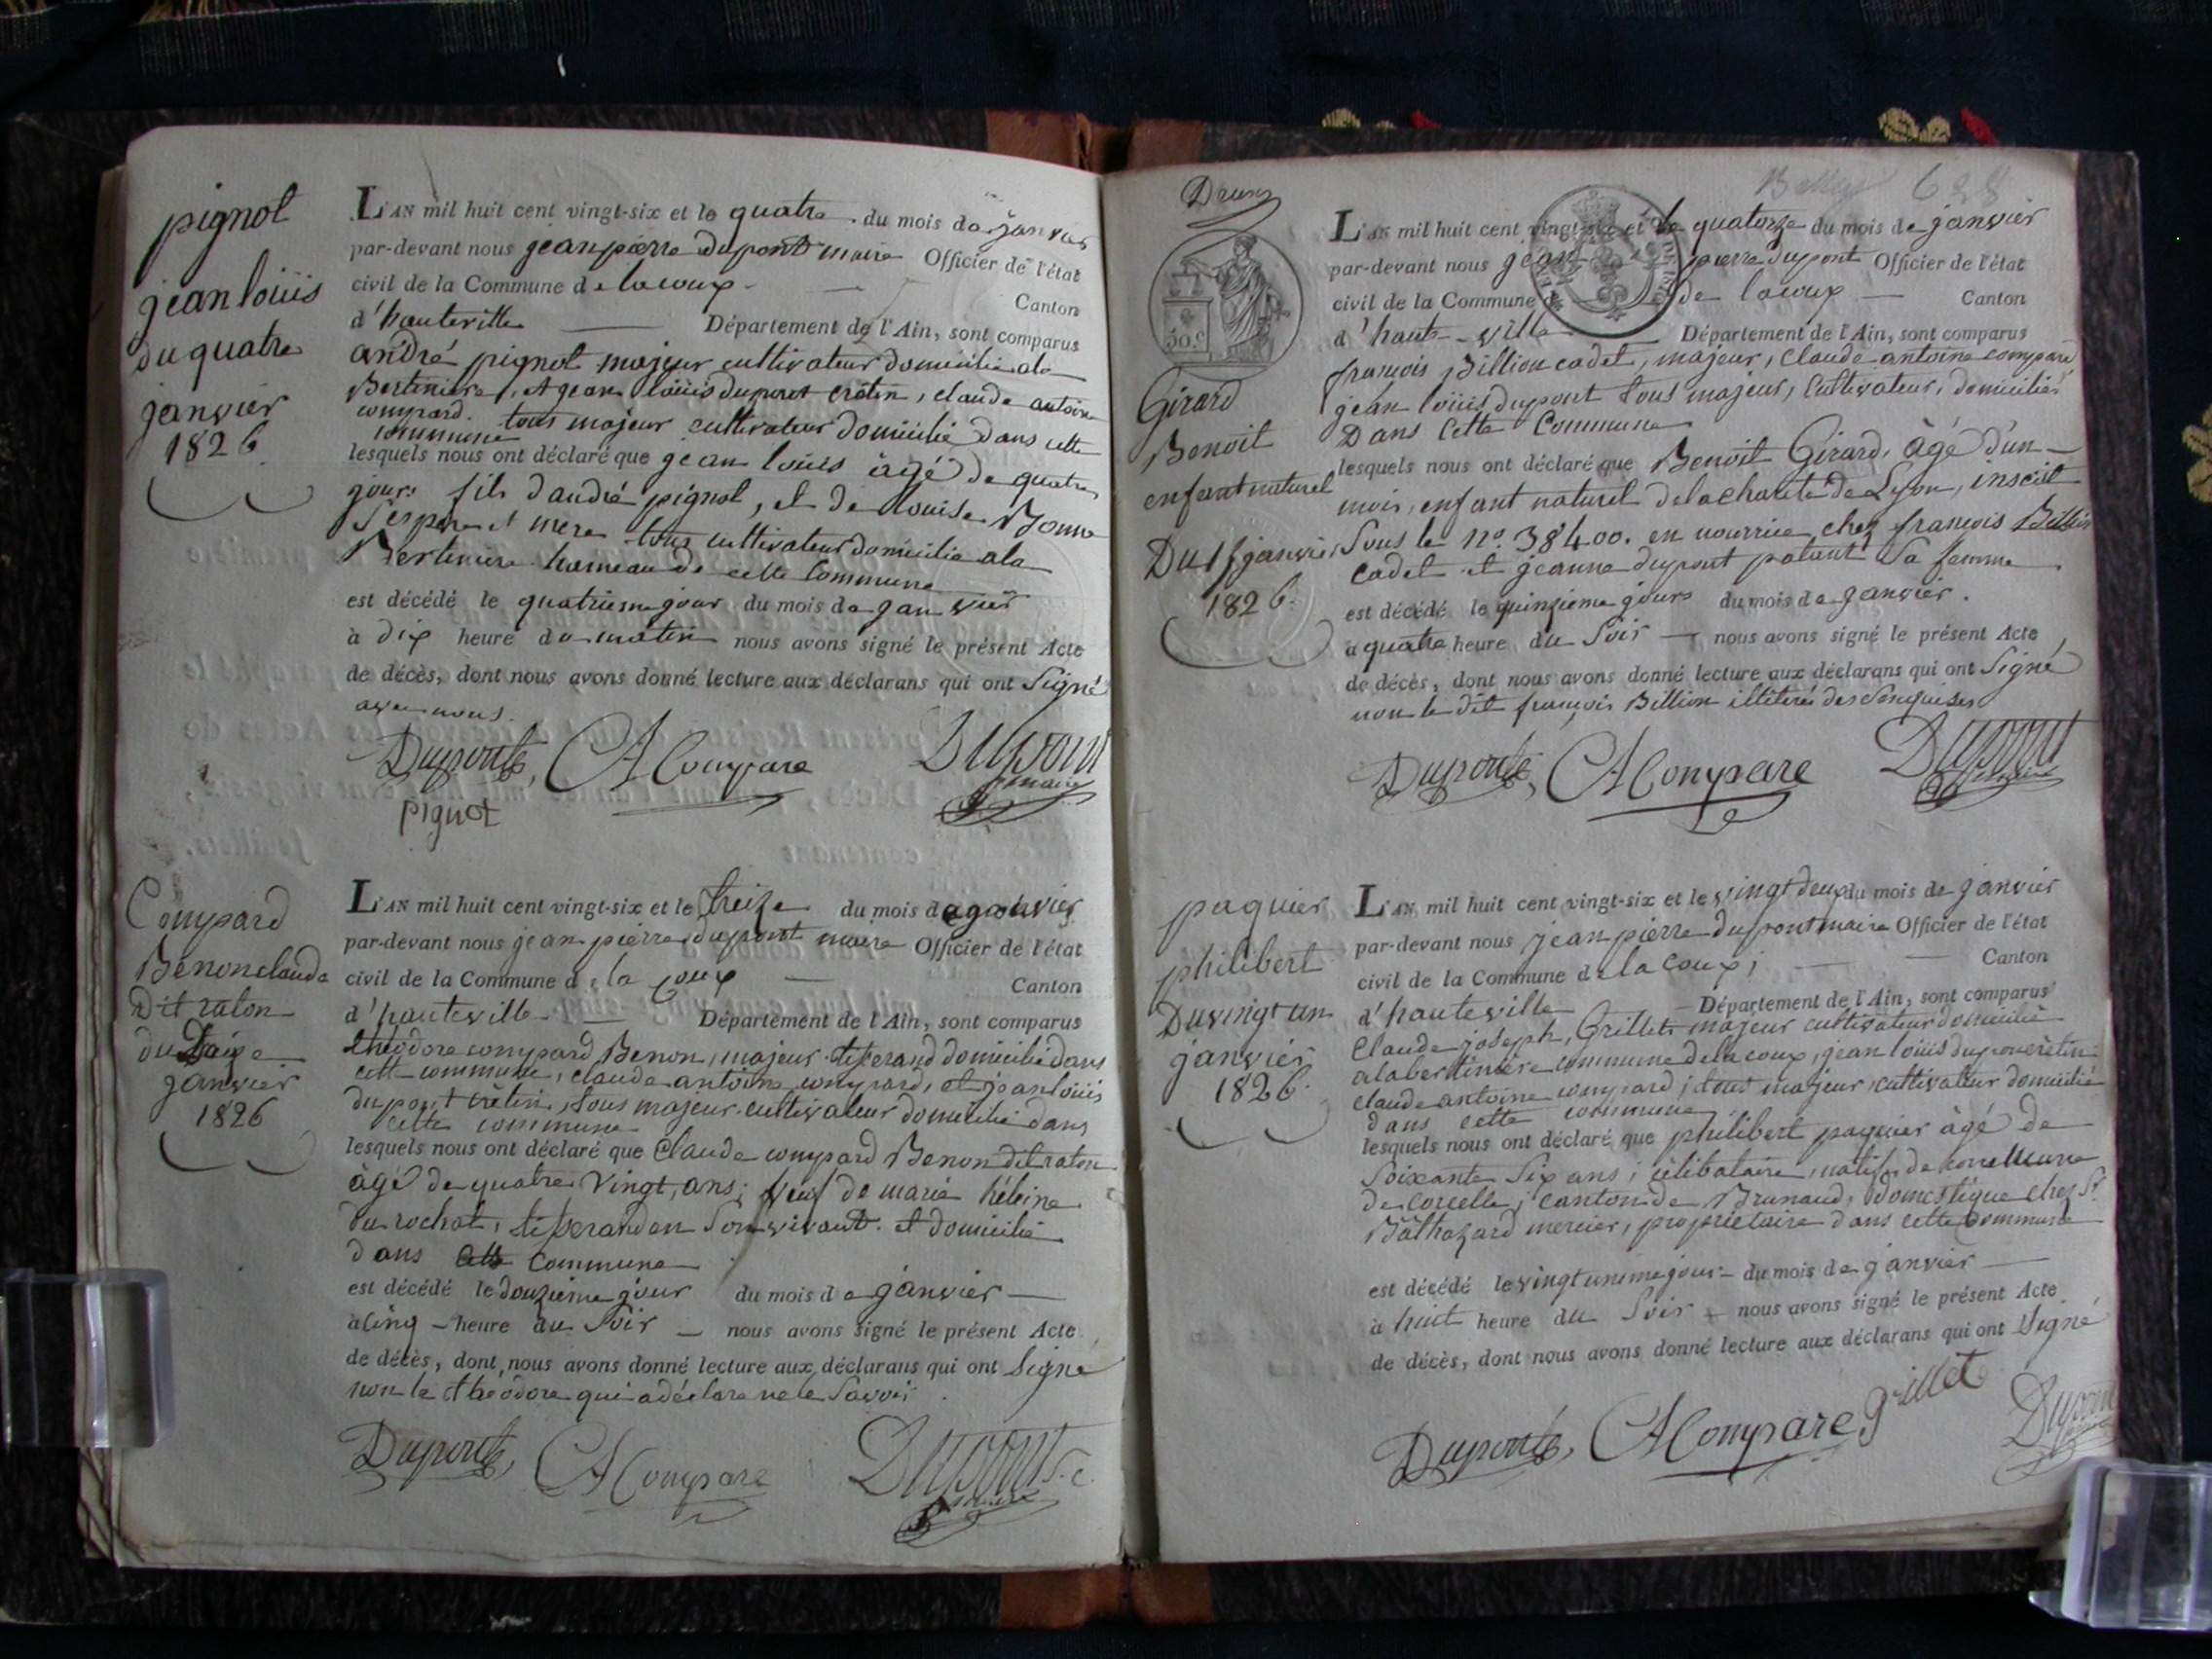 pignot
jean loüis
du quatre
janvier
1826
L'AN mil huit cent vingt-six et le quatre du mois de janvier
par-devant nous jean pierre dupont maire Officier de l'état
civil de la Commune de lacoux Canton
d'hauteville Département de l'Ain, sont comparus
andré pignot majeur cultivateur domicilié a la
Bertinière, et jean loüis dupont crétin, claude antoine
compard. tous majeur cultivateur domicilié dans cette
commune
lesquels nous ont déclaré que jean loüis âgé de quatre
jours fils d'andré pignot, et de louise
ses père et mère tous cultivateur domicilié a la
Bertinière hameau de cette Commune
est décédé le quatrieme jour du mois de janvier
à dix heure du matin nous avons signé le présent Acte
de décès, dont nous avons donné lecture aux déclarans qui ont Signé
avec nous.
Dupont, CA Compare Dupont
maire
pignot
Compard
Benon claude
Dit raton
du
janvier
1826
L'AN mil huit cent vingt-six et le treize du mois de janvier
par-devant nous jean pierre dupont maire Officier de l'état
civil de la Commune de la coux Canton
d'hauteville Département de l'Ain, sont comparus
théodore compard Benon, majeur tisserand domicilié dans
cette commune, claude antoine compard, et jean loüis
dupont crétin, tous majeur cultivateur domicilié dans
cette commune
lesquels nous ont déclaré que Claude compard Benon dit raton
âgé de quatre vingt, ans; veuf de marie héleine
du rochat, tisserand en Son vivant. et domicilié
dans cette Commune
est décédé le douzième jour du mois de janvier
à cinq heure du Soir nous avons signé le présent Acte
de décès, dont nous avons donné lecture aux déclarans qui ont Signé
non le théodore qui a déclare ne le Savoir
Dupont, CA Compare Dupont
maire
628
50 c
Girard
Benoit
enfant naturel
Du 15 janvier
1826.
L'AN mil huit cent vingt-six et le quatorze du mois de janvier
par-devant nous jean pierre dupont Officier de l'état
civil de la Commune de lacoux Canton
d'haute-ville Département de l'Ain, sont comparus
françois Billion cadet, majeur, claude antoine compard
jean loüis dupont tous majeur, Cultivateur, domiciliés
Dans Cette Commune
lesquels nous ont déclaré que Benoit Girard, âgé d'un
mois, enfant naturel de la charité de Lyon, inscrit
Sous le nº. 38400. en nourrice chez françois Billion
cadet et jeanne dupont Sa femme
est décédé le quinzieme jours du mois de janvier.
à quatre heure du Soir nous avons signé le présent Acte
de décès, dont nous avons donné lecture aux déclarans qui ont Signé
non le dit françois Billion illitéré
Dupont, CA Compare Dupont
paquier
philibert
Du vingt un
janvier
1826.
L'AN mil huit cent vingt-six et le vingt deux du mois de janvier
par-devant nous jean pierre dupont maire Officier de l'état
civil de la Commune de la coux; Canton
d'hauteville Département de l'Ain, sont comparus
Claude joseph, Grillet majeur cultivateur domicilié
a la bertinière commune de la coux, jean loüis dupont crétin
claude antoine compard; tous majeur cultivateur domicilié
dans cette commune
lesquels nous ont déclaré que philibert paquier âgé de
Soixante Six ans; célibataire, natif de
de corcelle, canton de Brunaud, domestique chez Sr.
Balthazard mercier, proprietaire dans cette Commune
est décédé le vingt unieme jour du mois de janvier
à huit heure du Soir nous avons signé le présent Acte
de décès, dont nous avons donné lecture aux déclarans qui ont Signé
Dupont, CA Compare, grillet Dupont